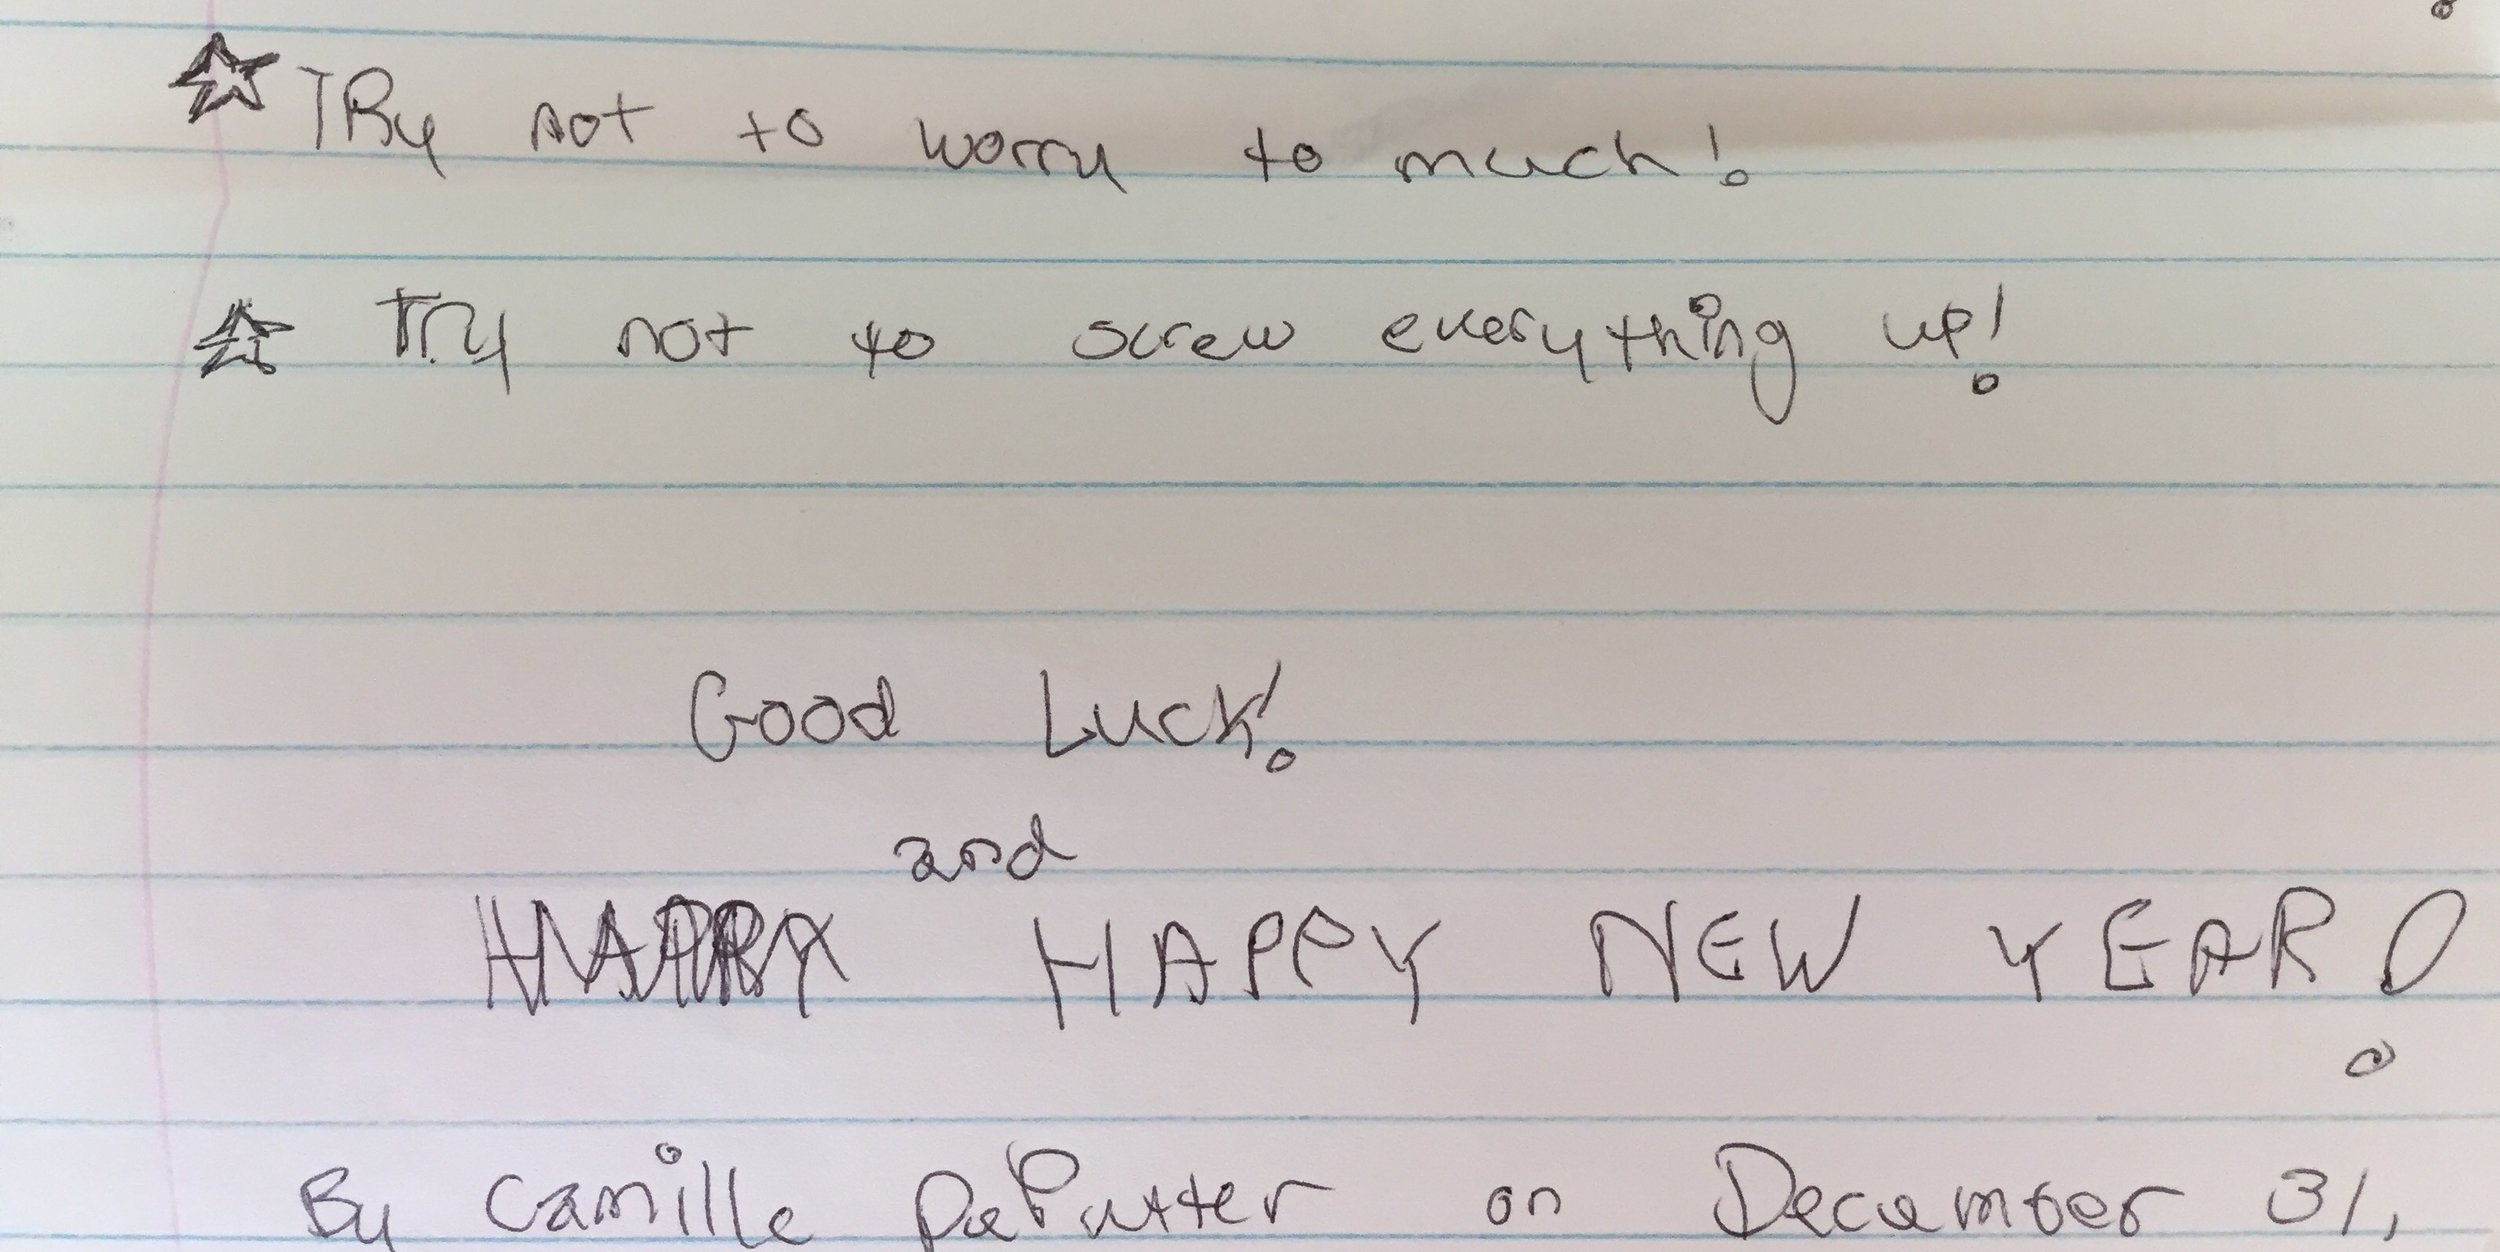 ☆ TRy not to worry to much!
☆ Try not to screw everything up!
Good Luck!
and
HAPPY HAPPY NEW YEAR!
By Camille DePutter on December 31,